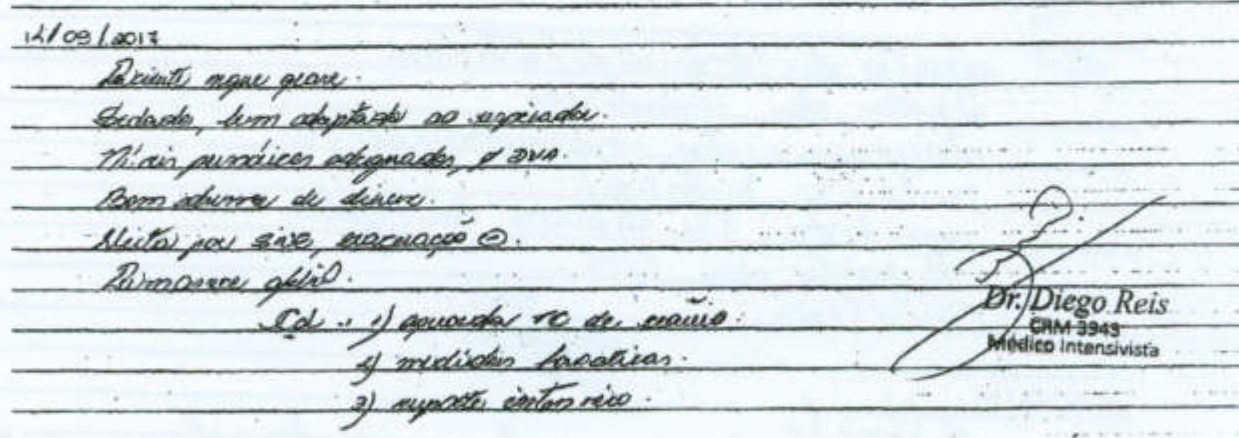 12/09/2017
Paciente segue grave.
Sedada, bem adaptada ao respirador.
Níveis pressóricos adequados, s/ DVA.
Bom volume de diurese.
Dieta por SNE, evacuação ⊖.
Permanece afebril.
Cd.: 1) aguarda TC de crânio.
2) medidas laxativas.
3) suporte intensivo.
Dr. Diego Reis
CRM 3943
Médico Intensivista